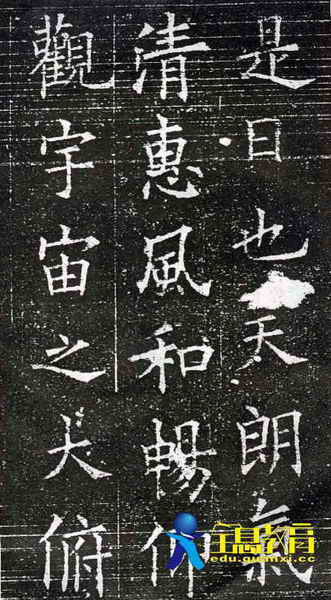 是日也天朗氣
清惠風和暢仰
觀宇宙之大俯
edu.quanxi.cc